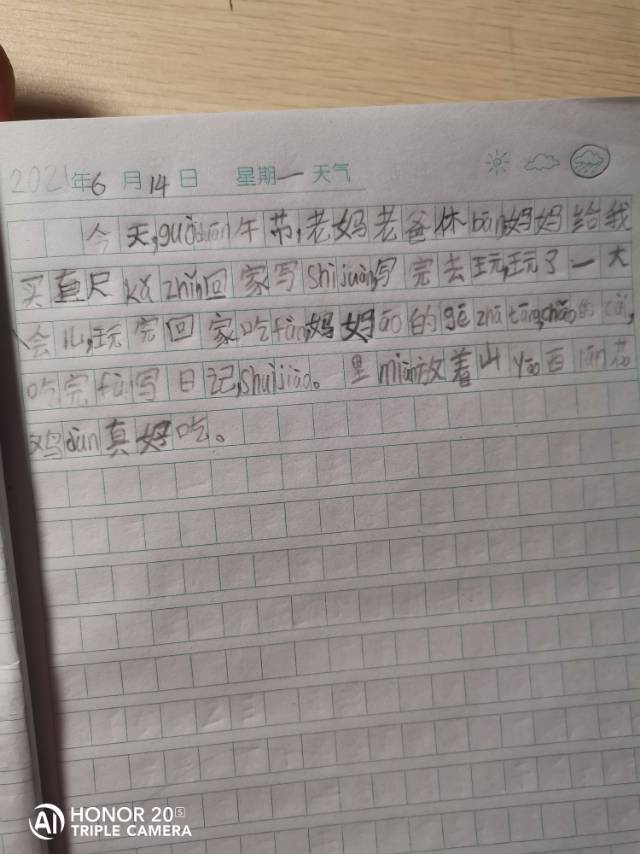 2021年6月14日 星期一 天气
今天,guòduān午节,老妈老爸休bān妈妈给我
买直尺kǎ zhǐn回家写shìjuàn,写完去玩,玩了一大
会儿,玩完回家吃fàn,妈妈āo的gē zhā tāng,chǎo的cài,
吃完fàn写日记,shuìjiào。里miàn放着山yào西lán花
鸡dàn真好吃。
HONOR 20S
TRIPLE CAMERA